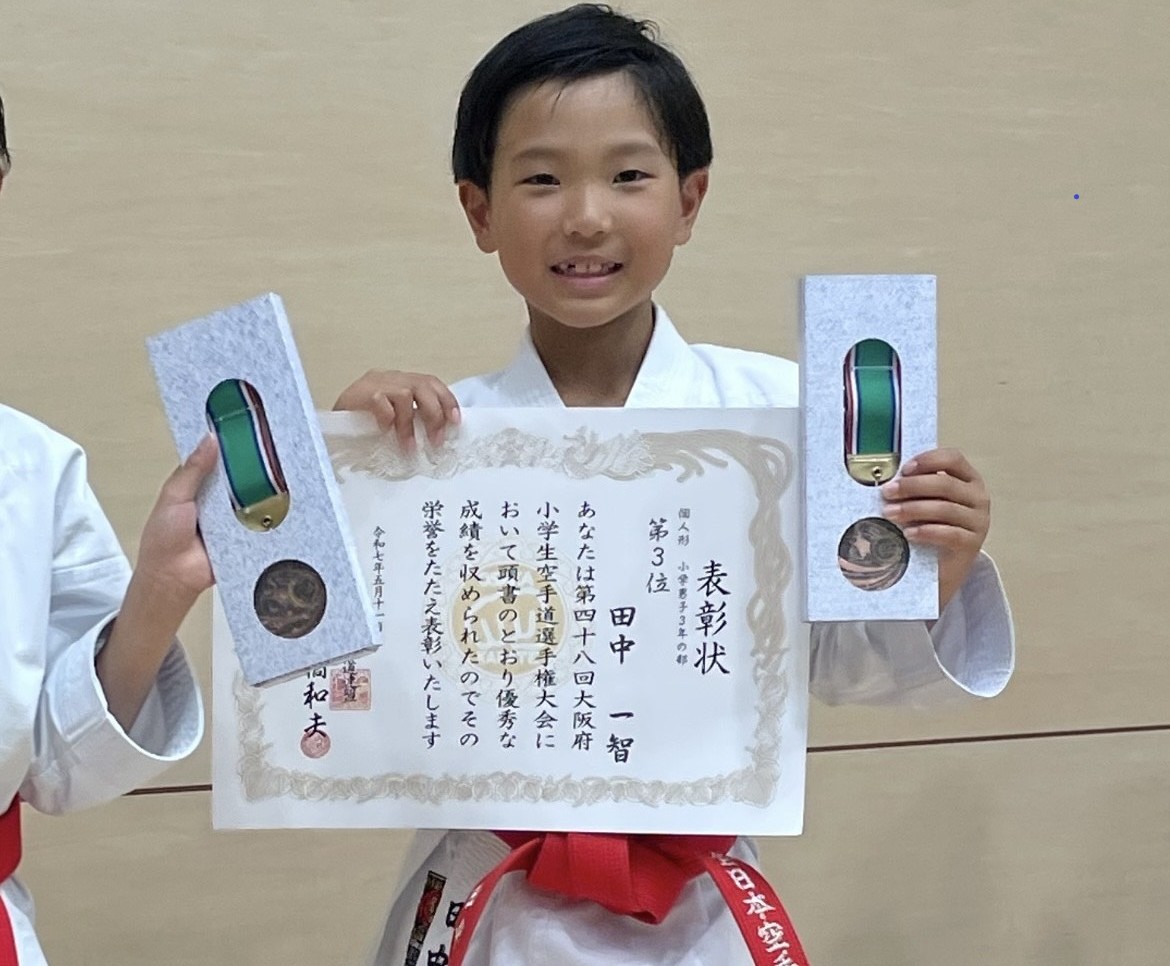 表彰状
個人形 小学男子3年の部
第3位
田中 一智
あなたは第四十八回大阪府
小学生空手道選手権大会に
おいて頭書のとおり優秀な
成績を収められたのでその
栄誉をたたえ表彰いたします
令和七年五月十一日
和夫
日本空手
田中